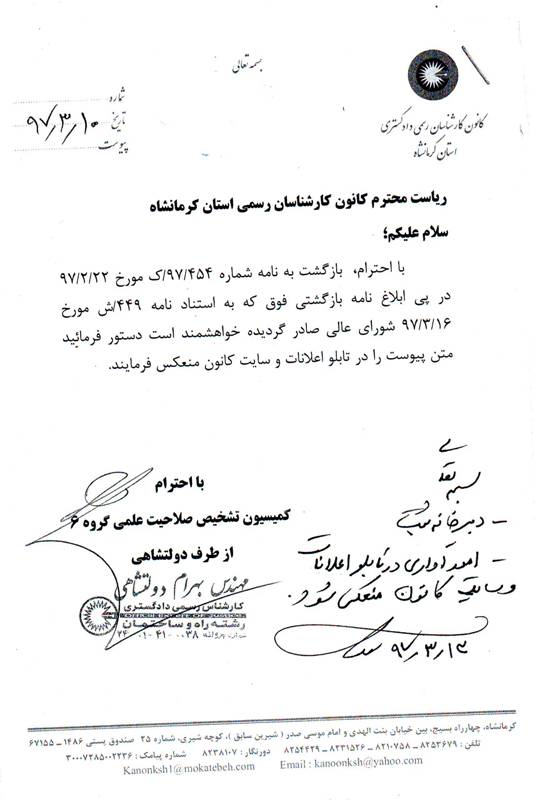 بسمه تعالی
کانون کارشناسان رسمی دادگستری
استان کرمانشاه
شماره
تاریخ ۹۷/۳/۱۰
پیوست
ریاست محترم کانون کارشناسان رسمی استان کرمانشاه
سلام علیکم؛
با احترام، بازگشت به نامه شماره ۹۷/۴۵۴/ک مورخ ۹۷/۲/۲۲
در پی ابلاغ نامه بازگشتی فوق که به استناد نامه ۴۴۹/ش مورخ
۹۷/۳/۱۶ شورای عالی صادر گردیده خواهشمند است دستور فرمائید
متن پیوست را در تابلو اعلانات و سایت کانون منعکس فرمایند.
با احترام
کمیسیون تشخیص صلاحیت علمی گروه ۶
از طرف دولتشاهی
مهندس بهرام دولتشاهی
کارشناس رسمی دادگستری
رشته راه و ساختمان
شماره پروانه ۲۴-۰۱-۴۱-۰۰۳۸
بسمه تعالی
- دبیرخانه ثبت
- امور اداری در تابلو اعلانات
و سایت کانون منعکس شود.
۹۷/۳/۱۳
کرمانشاه، چهارراه بسیج، بین خیابان بنت الهدی و امام موسی صدر ( شیرین سابق )، کوچه شیری، شماره ۲۵ صندوق پستی ۱۴۸۶ – ۶۷۱۵۵
تلفن : ۸۲۵۳۶۷۹ – ۸۲۱۰۷۵۸ – ۸۲۳۱۵۲۶ – ۸۲۵۴۴۲۹ دورنگار : ۸۲۳۸۱۰۷ شماره پیامک : ۳۰۰۰۷۳۸۵۰۰۲۲۳۶
Kanonksh1@mokatebeh.com Email : kanoonksh@yahoo.com